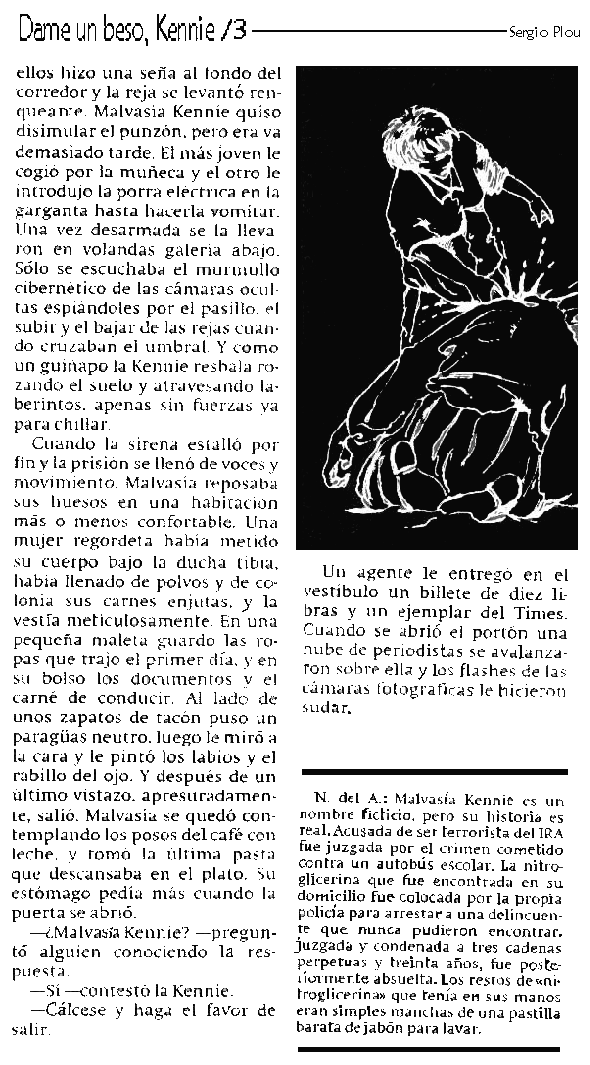 Dame un beso, Kennie /3
Sergio Plou
ellos hizo una seña al fondo del
corredor y la reja se levantó ren-
queante. Malvasía Kennie quiso
disimular el punzón, pero era ya
demasiado tarde. El más joven le
cogió por la muñeca y el otro le
introdujo la porra eléctrica en la
garganta hasta hacerla vomitar.
Una vez desarmada se la lleva
ron en volandas galería abajo.
Sólo se escuchaba el murmullo
cibernético de las cámaras ocul-
tas espiándoles por el pasillo, el
subir y el bajar de las rejas cuan-
do cruzaban el umbral. Y como
un guiñapo la Kennie resbala ro-
zando el suelo y atravesando la-
berintos, apenas sin fuerzas ya
para chillar.
Cuando la sirena estalló por
fin y la prisión se llenó de voces y
movimiento, Malvasía reposaba
sus huesos en una habitación
más o menos confortable. Una
mujer regordeta había metido
su cuerpo bajo la ducha tibia,
había llenado de polvos y de co-
lonia sus carnes enjutas, y la
vestía meticulosamente. En una
pequeña maleta guardo las ro-
pas que trajo el primer día, y en
su bolso los documentos y el
carné de conducir. Al lado de
unos zapatos de tacón puso un
paragüas neutro, luego le miró a
la cara y le pintó los labios y el
rabillo del ojo. Y después de un
último vistazo, apresuradamen-
te, salió. Malvasía se quedó con-
templando los posos del café con
leche, y tomó la última pasta
que descansaba en el plato. Su
estómago pedía más cuando la
puerta se abrió.
—¿Malvasía Kennie? —pregun-
tó alguien conociendo la res-
puesta.
—Sí —contestó la Kennie.
—Cálcese y haga el favor de
salir.
Un agente le entregó en el
vestíbulo un billete de diez li-
bras y un ejemplar del Times.
Cuando se abrió el portón una
nube de periodistas se avalanza-
ron sobre ella y los flashes de las
cámaras fotograficas le hicieron
sudar.
N. del A.: Malvasía Kennie es un
nombre ficticio, pero su historia es
real. Acusada de ser terrorista del IRA
fue juzgada por el crimen cometido
contra un autobús escolar. La nitro-
glicerina que fue encontrada en su
domicilio fue colocada por la propia
policía para arrestar a una delincuen-
te que nunca pudieron encontrar,
juzgada y condenada a tres cadenas
perpetuas y treinta años, fue poste-
riormente absuelta. Los restos de «ni-
troglicerina» que tenía en sus manos
eran simples manchas de una pastilla
barata de jabón para lavar.